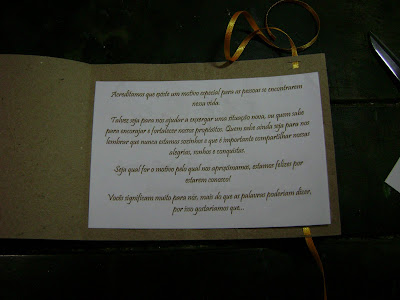 Acreditamos que existe um motivo especial para as pessoas se encontrarem
nessa vida.
Talvez seja para nos ajudar a enxergar uma situação nova, ou quem sabe
para encorajar e fortalecer nosso propósito. Quem sabe ainda seja para nos
lembrar que nunca estamos sozinhos e que é importante compartilhar nossas
alegrias, sonhos e conquistas.
Seja qual for o motivo pelo qual nos aproximamos, estamos felizes por
estarem conosco!
Vocês significam muito para nós, mais do que as palavras poderiam dizer,
por isso gostaríamos que...